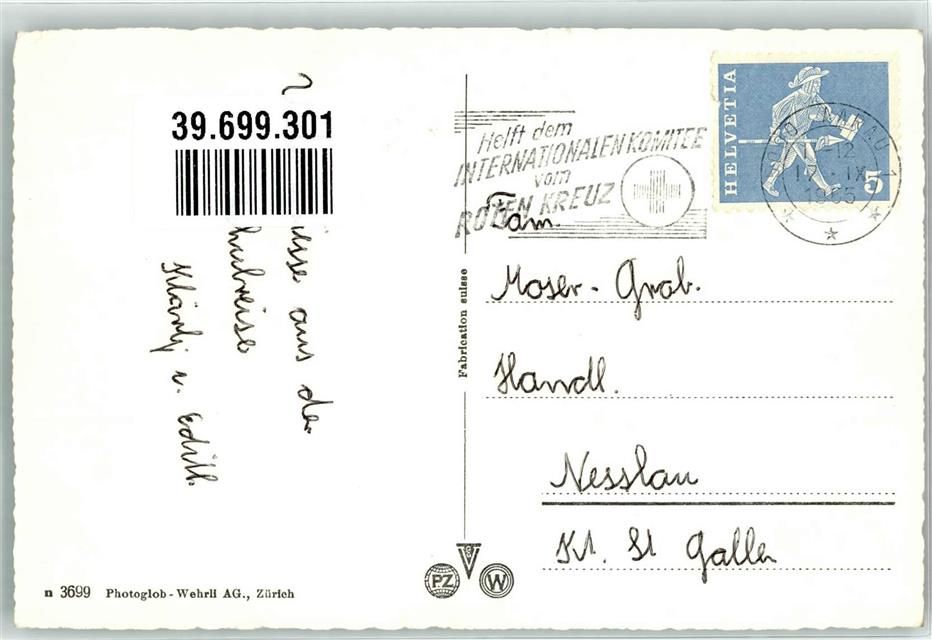 39.699.301
aus de
Klärly u. Edith.
n 3699 Photoglob-Wehrli AG., Zürich
Fabrication suisse
PZ
W
Helft dem
INTERNATIONALEN KOMITEE
vom
ROTEN KREUZ
HELVETIA
5
AARAU 1
-12
17. IX.
1965
Fam.
Moser-Grob.
Handl.
Nesslau
Kt. St Gallen